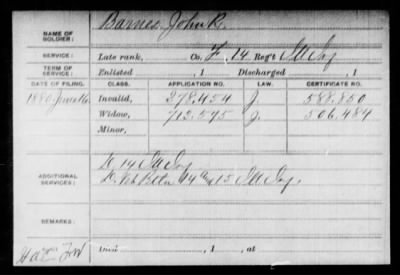 NAME OF SOLDIER: Barnes, John R.
SERVICE: Late rank, Co. F, 14 Reg't Ill Inf
TERM OF SERVICE: Enlisted , 1 Discharged , 1
DATE OF FILING. CLASS. APPLICATION NO. LAW. CERTIFICATE NO.
1880 June 16 Invalid, 378.454 J. 588.850
Widow, 713.595 J. 506.484
Minor,
ADDITIONAL SERVICES: D. 14 Ill Inf
D. Vet Batn 14 and 15 Ill Inf.
REMARKS:
, 1 , at